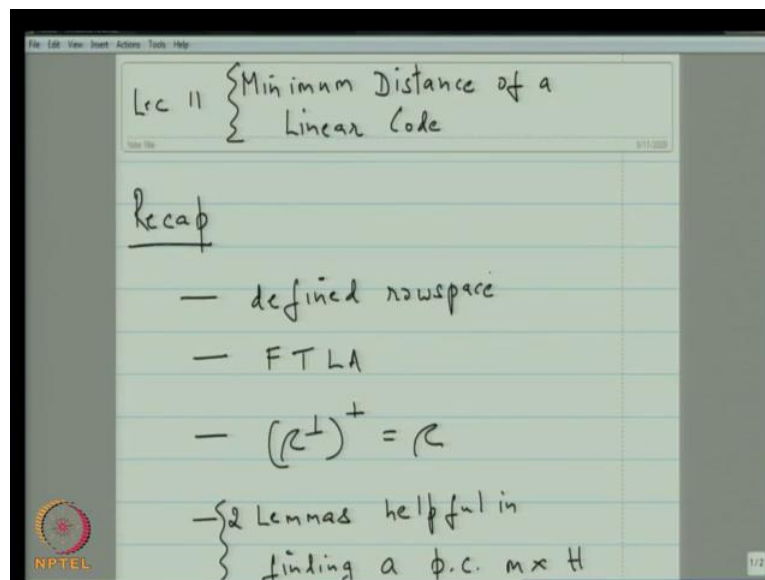 File Edit View Insert Actions Tools Help
Lec 11 { Minimum Distance of a
Linear Code
Note Title
9/11/2009
Recap
— defined rowspace
— FTLA
— (C⊥)⊥ = C
— { 2 Lemmas helpful in
finding a p.c. mx H
NPTEL
1/2